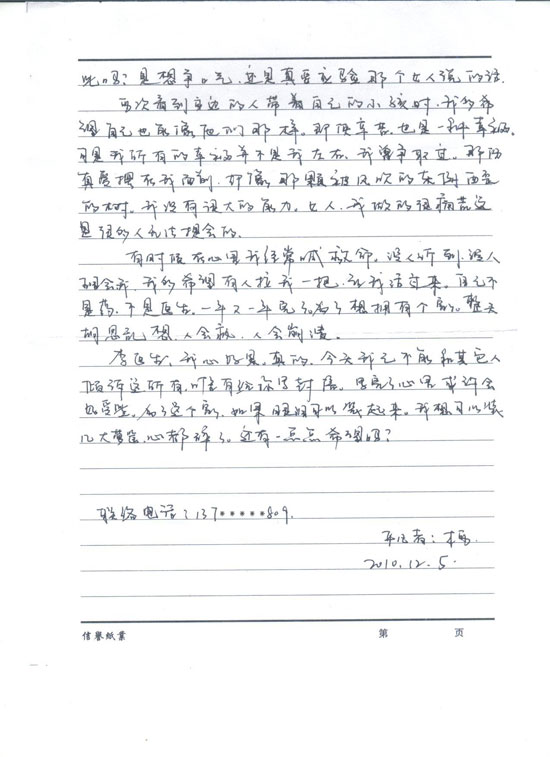 此吗？是想争口气，还是真要应验那个女人说的话。
每次看到身边的人带着自己的小孩时，我多希
望自己也能像他们那样。那怕辛苦，也是一种幸福。
可是我所有的幸福并不是我左右，我争取过。那份
真爱摆在我面前，好像那颗被风吹的东倒西歪
的树。我没有强大的能力。女人，我做的很痛苦
是别的人无法提会的。
有时候在心里我经常喊救命。没人听到，没人
理会我，我多希望有人拉我一把，让我活过来。自己不
是药，不是医生。一年又一年完了。为了想拥有个家。整天
胡思乱想，人会疯，人会崩溃。
李医生，我心好累。真的，今天我已不能和其它人
倾诉这所有，唯有给你写封信。写完了心里或许会
好受些。为了这个家，如果眼泪可以装起来。我想可以装
几大箩筐，心都碎了。还有一点点希望吗？
联络电话：137*****809.
来信者：
2010.12.5.
信誉纸业
第 页